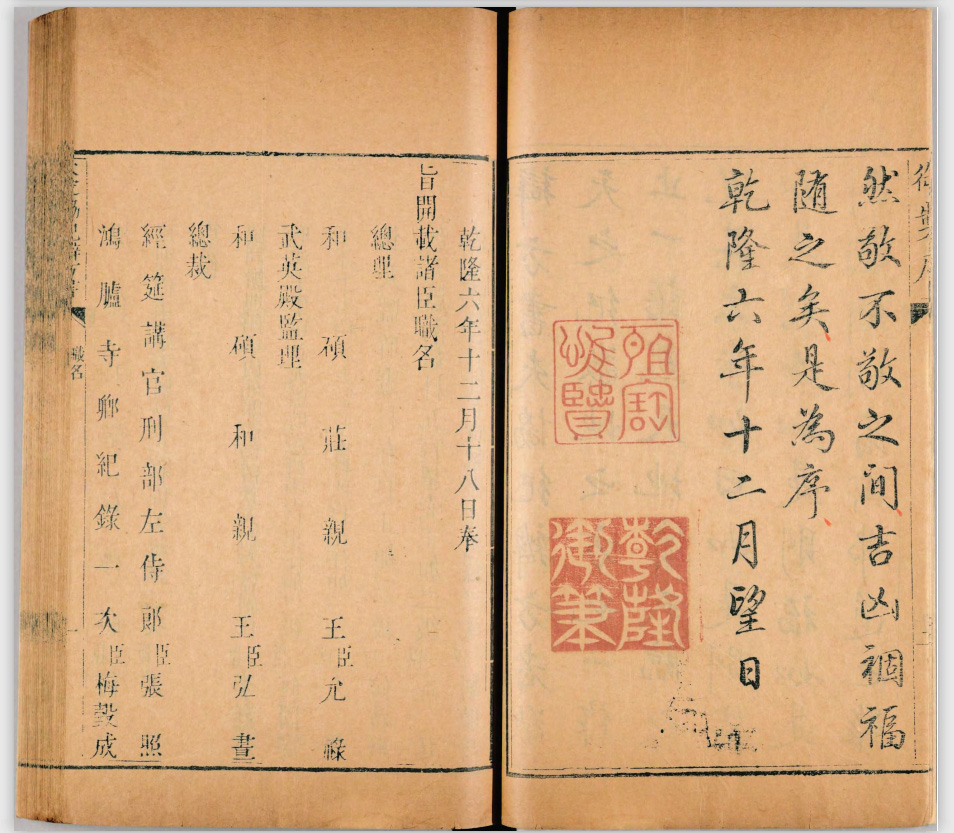 御製序
然敬不敬之間吉凶禍福
隨之矣是為序
乾隆六年十二月望日
所寶惟賢
乾隆御筆
乾隆六年十二月十八日奉
旨開載諸臣職名
總理
和碩莊親王臣允祿
武英殿監理
和碩和親王臣弘晝
總裁
經筵講官刑部左侍郎臣張照
鴻臚寺卿紀錄一次臣梅瑴成
職名